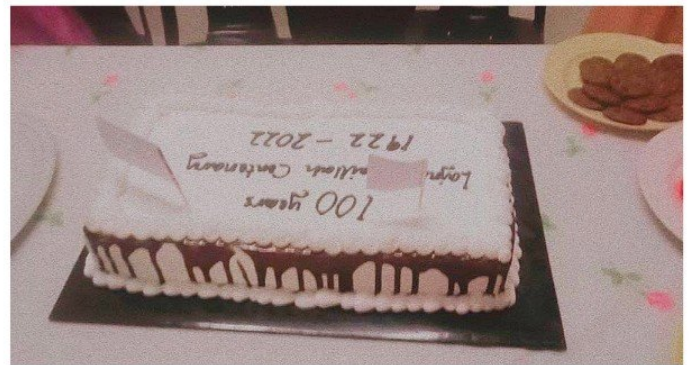 100 years
Centenary
1922 - 2022